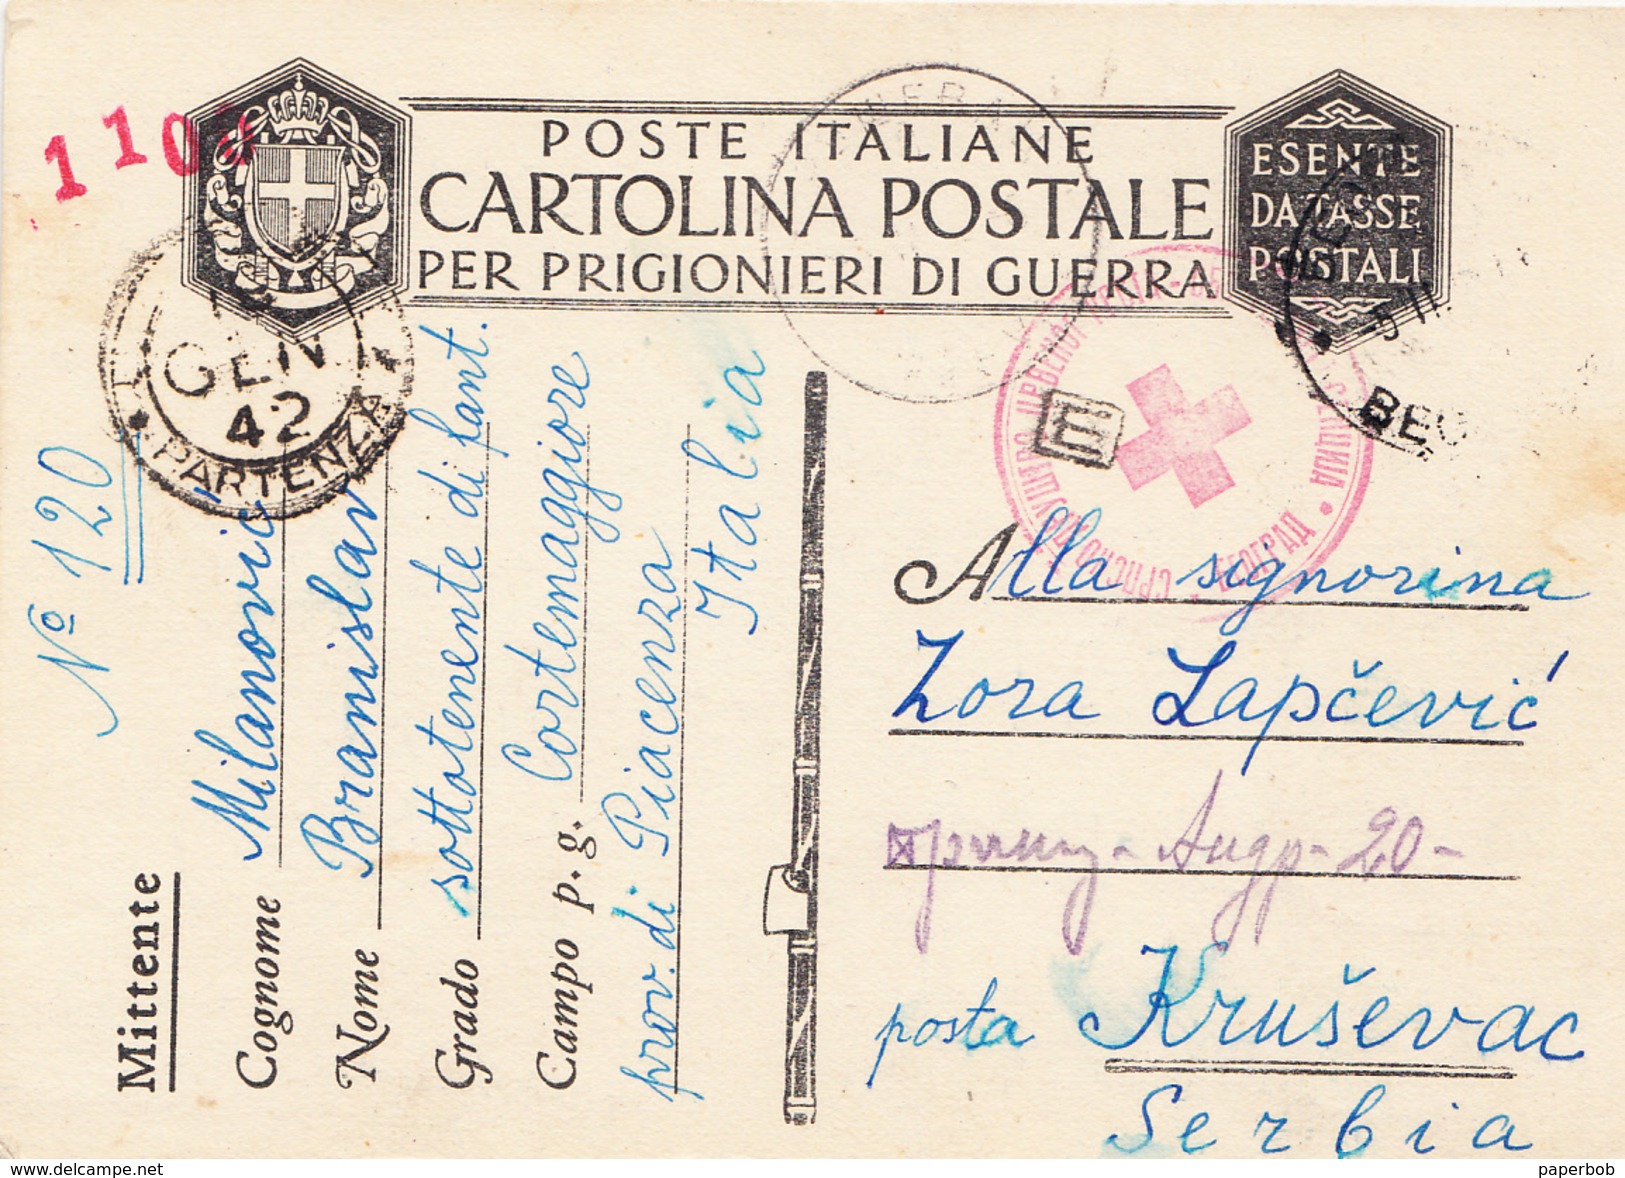 1106
POSTE ITALIANE
CARTOLINA POSTALE
PER PRIGIONIERI DI GUERRA
ESENTE
DA TASSE
POSTALI
GEN
42
PARTENZA
Nº 120
Mittente
Cognome Milanović
Nome Branislav
Grado sottotenente di fant.
Campo p. g. Cortemaggiore
prov. di Piacenza
Italia
E
СРПСКО ДРУШТВО ЦРВЕНОГ КРСТА
БЕОГРАД
BEO
Alla signorina
Zora Lapčević
20-
posta Kruševac
Serbia
www.delcampe.net
paperbob